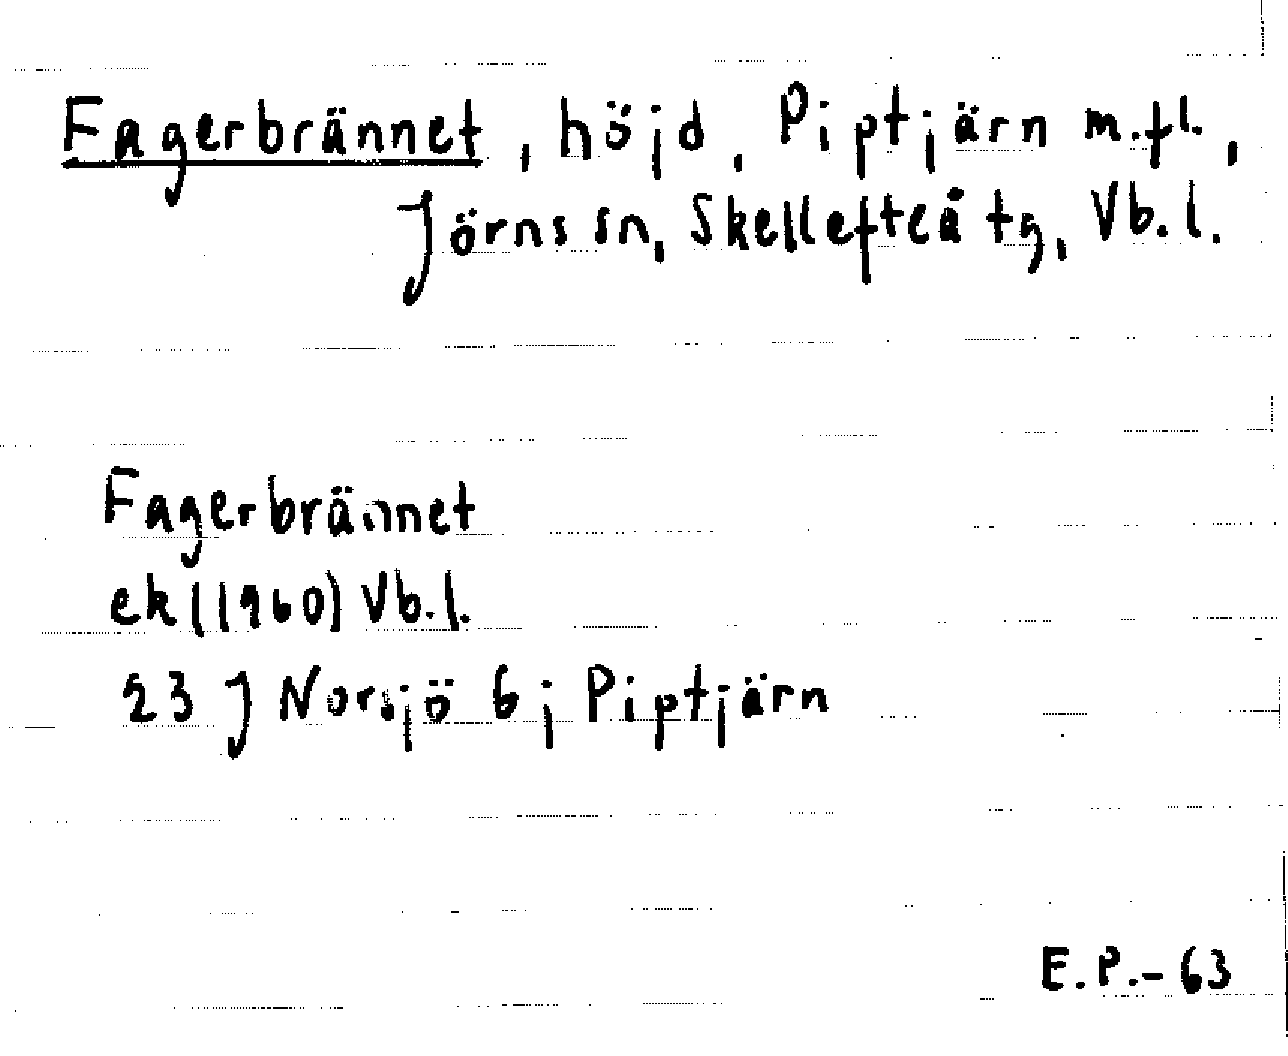 Fagerbrännet, höjd, Piptjärn m.fl.,
Jörns sn, Skellefteå tg, Vb.l.
Fagerbrännet
ek (1960) Vb.l.
23 J Norsjö 6 j Piptjärn
E.P.-63